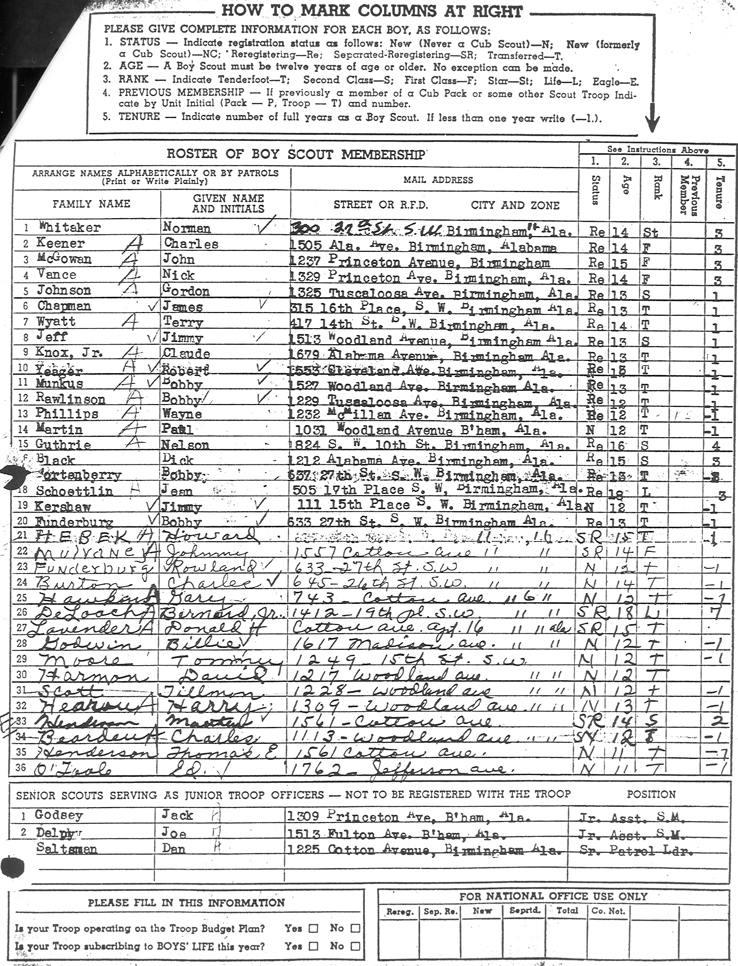 HOW TO MARK COLUMNS AT RIGHT
PLEASE GIVE COMPLETE INFORMATION FOR EACH BOY, AS FOLLOWS:
1. STATUS — Indicate registration status as follows: New (Never a Cub Scout)—N; New (formerly
a Cub Scout)—NC; Reregistering—Re; Separated-Reregistering—SR; Transferred—T.
2. AGE — A Boy Scout must be twelve years of age or older. No exception can be made.
3. RANK — Indicate Tenderfoot—T; Second Class—S; First Class—F; Star—St; Life—L; Eagle—E.
4. PREVIOUS MEMBERSHIP — If previously a member of a Cub Pack or some other Scout Troop Indi-
cate by Unit Initial (Pack — P, Troop — T) and number.
5. TENURE — Indicate number of full years as a Boy Scout. If less than one year write (—1.).
ROSTER OF BOY SCOUT MEMBERSHIP
See Instructions Above
1. 2. 3. 4. 5.
ARRANGE NAMES ALPHABETICALLY OR BY PATROLS
(Print or Write Plainly)
MAIL ADDRESS
FAMILY NAME GIVEN NAME AND INITIALS STREET OR R.F.D. CITY AND ZONE
Status Age Rank Previous Member Tenure
1 Whitaker Norman 300 S.W. Birmingham, Ala. Re 14 St 3
2 Keener A Charles 1505 Ala. Ave. Birmingham, Alabama Re 14 F 3
3 McGowan A John 1237 Princeton Avenue, Birmingham Re 15 F 3
4 Vance A Nick 1329 Princeton Ave. Birmingham, Ala. Re 14 F 3
5 Johnson A Gordon 1325 Tuscaloosa Ave. Birmingham, Ala. Re 13 S 1
6 Chapman James 315 16th Place, S. W. Birmingham Ala. Re 13 T 1
7 Wyatt A Terry 417 14th St. S.W. Birmingham, Ala. Re 14 T 1
8 Jeff Jimmy 1513 Woodland Avenue, Birmingham Ala. Re 13 S 1
9 Knox, Jr. A Claude 1679 Alabama Avenue, Birmingham Ala. Re 13 T 1
10 Yeager A Robert 1553 Cleveland Ave. Birmingham, Ala. Re T 1
11 Munkus A Bobby 1527 Woodland Ave. Birmingham Ala. Re 13 T 1
12 Rawlinson A Bobby 1229 Tuscaloosa Ave. Birmingham, Ala. Re 12 T 1
13 Phillips A Wayne 1232 McMillan Ave. Birmingham, Ala. Re 12 T -1
14 Martin A Paul 1031 Woodland Avenue B'ham, Ala. N 12 T -1
15 Guthrie A Nelson 1824 S. W. 10th St. Birmingham, Ala. Re 16 S 4
Black Dick 1212 Alabama Ave. Birmingham, Ala. Re 15 S 3
ortenberry Bobby 637 27th St. S. W. Birmingham, Ala. Re 13 T
18 Schoettlin Jean 505 17th Place S. W. Birmingham, Ala. Re 18 L 3
19 Kershaw Jimmy 111 15th Place S. W. Birmingham Ala N 12 T -1
20 Funderburg Bobby 633 27th St. S. W. Birmingham, Ala. Re 13 T 1
21 Howard SR 15 T -1
22 Mulvaney A Johnny 1557 Cotton ave " " SR 14 F
23 Funderburg Rowland 633-27th St. S.W N 12 T -1
24 Burton Charles 645-26th St. S.W. " " N 14 T -1
25 Gary 743 - Cotton ave " 6 " N 12 T -1
26 DeLoach A Bernard, Jr. 1412-19th pl. S.W " " SR 18 Li 7
27 Lavender A Donald H Cotton ave. apt. 16 " " ala SR 15 T
28 Godwin Billie 1617 Madison ave. " " N 12 T -1
29 Moore Tommy 1249 - 15th St. S.W N 12 T -1
30 Harmon David 1217 Woodland ave. " " N 12 T
31 Scott Tillmon 1228 - Woodland ave " " N 12 T -1
32 Hearou A Harry 1309 - Woodland ave. " " N 13 T -1
33 1561 - Cotton ave. SR 14 S 2
34 Bearden A Charles 1113 - Woodland ave. " " 12 -1
35 Henderson Thomas E 1561 Cotton ave. N 11 T -1
36 Ed. 1762 - Jefferson ave. N 11 T -1
SENIOR SCOUTS SERVING AS JUNIOR TROOP OFFICERS — NOT TO BE REGISTERED WITH THE TROOP POSITION
1 Godsey Jack 1309 Princeton Ave, B'ham, Ala. Jr. Asst. S.M.
2 Delpy Joe 1513 Fulton Ave. B'ham, Ala. Jr. Asst. S.M.
Saltsman Dan 1225 Cotton Avenue, Birmingham Ala. Sr. Patrol Ldr.
PLEASE FILL IN THIS INFORMATION
Is your Troop operating on the Troop Budget Plan? Yes No
Is your Troop subscribing to BOYS' LIFE this year? Yes No
FOR NATIONAL OFFICE USE ONLY
Rereg. Sep. Re. New Seprtd. Total Co. Not.